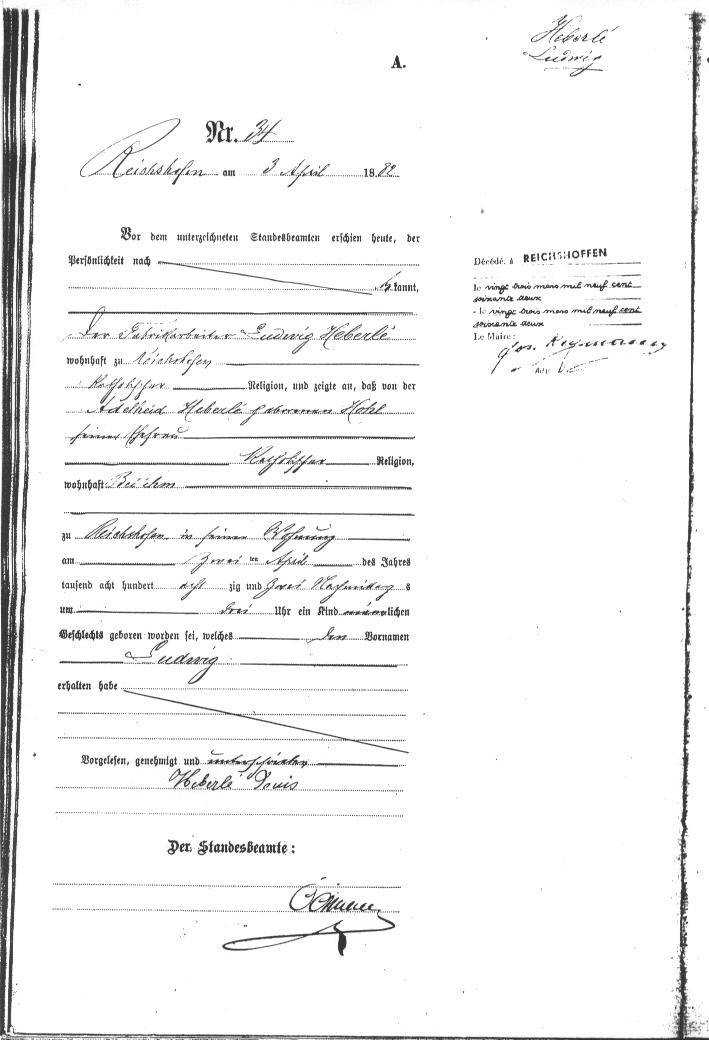 Heberlé
Ludwig
A.
Nr. 34
Reichshofen am 3 April 1882
Vor dem unterzeichneten Standesbeamten erschien heute, der
Persönlichkeit nach
kannt,
Der Fabrikarbeiter Ludwig Heberlé
wohnhaft zu Reichshofen
Religion, und zeigte an, daß von der
Adelheid Heberlé geborenen Hohl
seiner Ehefrau
Religion,
wohnhaft
zu Reichshofen in seiner Wohnung
am zwei ten April des Jahres
tausend acht hundert acht zig und zwei Nachmittag s
um drei Uhr ein Kind männlichen
Geschlechts geboren worden sei, welches den Vornamen
Ludwig
erhalten habe
Vorgelesen, genehmigt und unterschrieben
Heberlé Louis
Der Standesbeamte:
Décédé à REICHSHOFFEN
le vingt trois mars mil neuf cent
soixante deux
le vingt trois mars mil neuf cent
soixante deux
Le Maire: